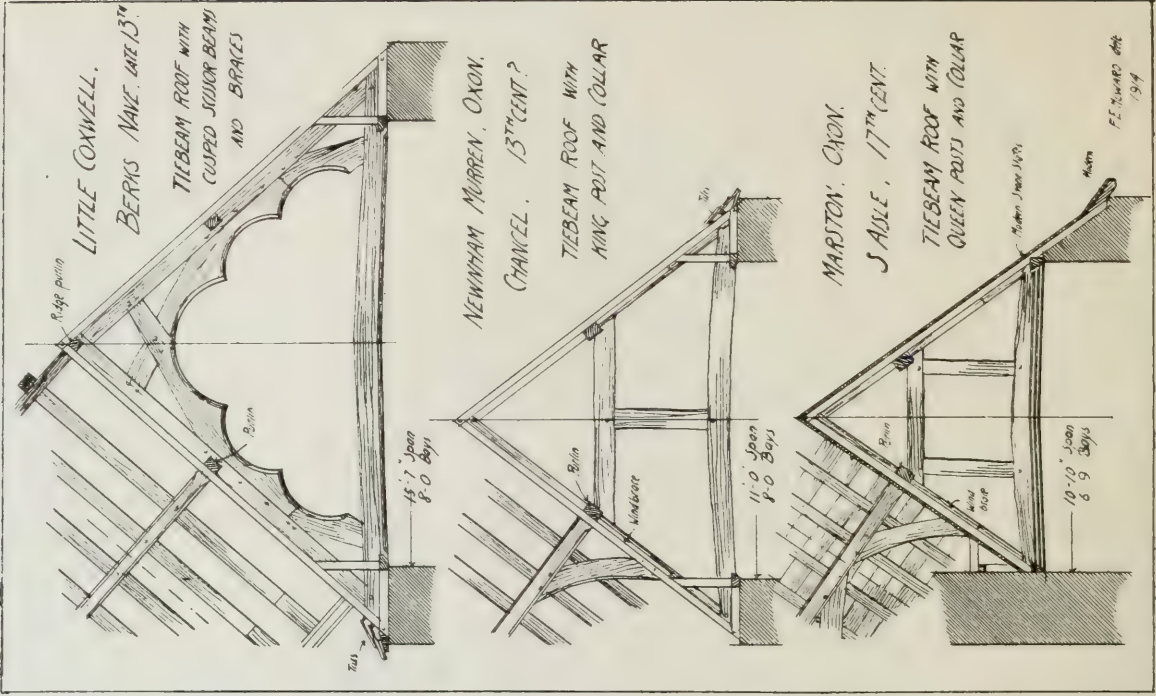 LITTLE COXWELL.
BERKS NAVE. LATE 13TH.
TIEBEAM ROOF WITH
CUSPED SCISSOR BEAMS
AND BRACES
Ridge purlin
Purlin
Tiles
15'-7" Span
8-0 Bays
NEWNHAM MURREN. OXON.
CHANCEL. 13TH CENT?
TIEBEAM ROOF WITH
KING POST AND COLLAR
Tiles
Purlin
Windbrace
11'-0" Span
8-0 Bays
MARSTON. OXON.
S AISLE. 17TH CENT.
TIEBEAM ROOF WITH
QUEEN POSTS AND COLLAR
Modern Stone Slates
Modern
Purlin
Wind
brace
10'-10" Span
6 9 Bays
F.E. HOWARD delt
1914